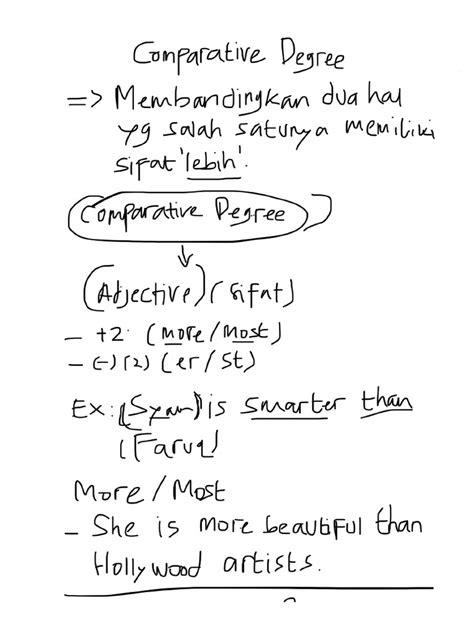 Comparative Degree
=> Membandingkan dua hal
yg salah satunya memiliki
sifat 'lebih'.
Comparative Degree
(Adjective) (sifat)
- +2. (more/most)
- (-) (2) (er/st)
Ex: (Syam) is smarter than
(Faruq)
More / Most
- She is more beautiful than
Hollywood artists.